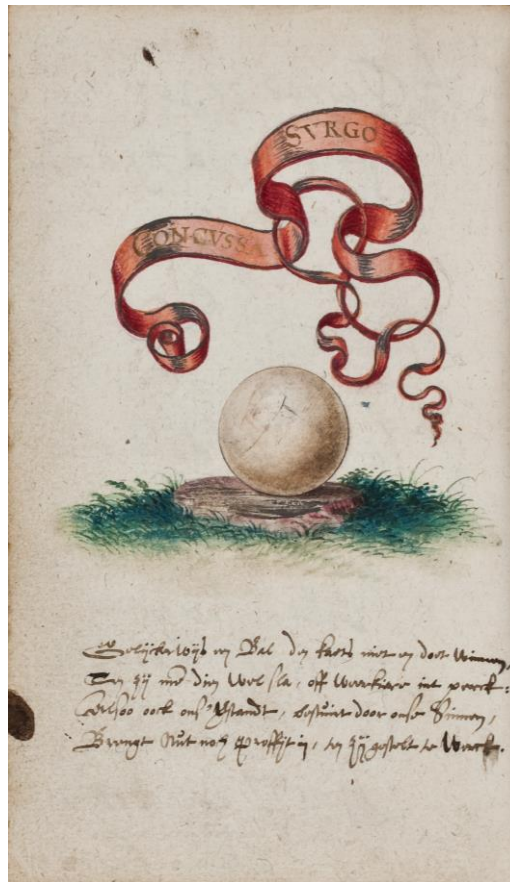 SVRGO
CONCVSSA
Gelijckerwijs een Bal den kaets niet en doet winnen,
Ten zij men dien wel sla, off weerkeere int perck:
Alsoo oock ons verstandt, bestuirt door onse Sinnen,
Brengt Nut noch Proffijt in, ten zij gestelt te Werck.